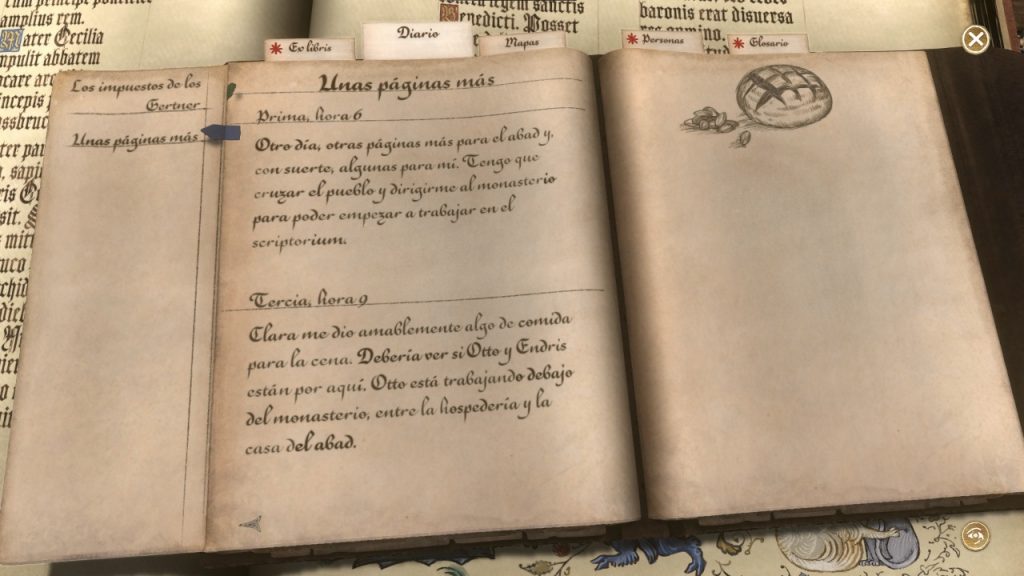 cum principe
amplius rem.
Mater Cecilia
Benedicti. Posset
baronis erat disuersa
Ex libris
Diario
Mapas
Personas
Glosario
Los impuestos de los
Gertner
Unas páginas más
Unas páginas más
Prima, hora 6
Otro día, otras páginas más para el abad y,
con suerte, algunas para mí. Tengo que
cruzar el pueblo y dirigirme al monasterio
para poder empezar a trabajar en el
scriptorium.
Tercia, hora 9
Clara me dio amablemente algo de comida
para la cena. Debería ver si Otto y Endris
están por aquí. Otto está trabajando debajo
del monasterio, entre la hospedería y la
casa del abad.